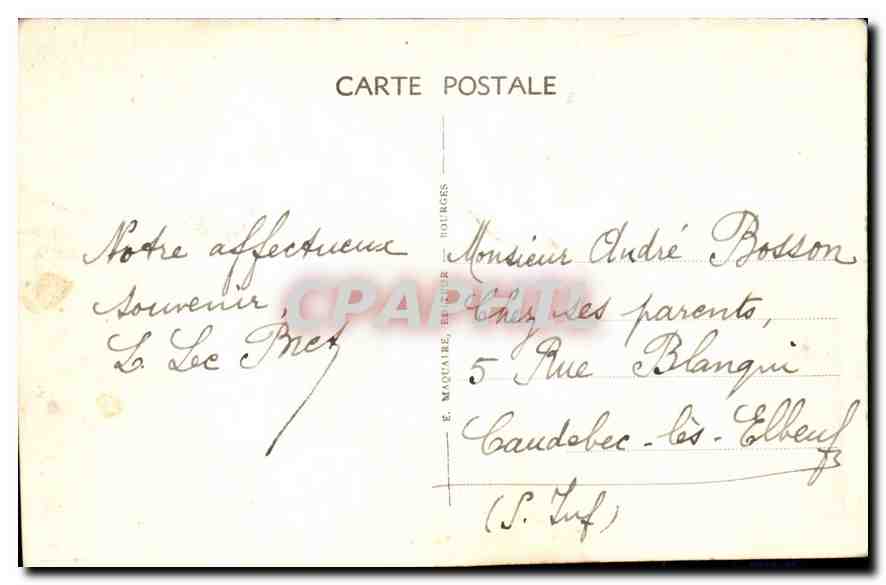 CARTE POSTALE
Notre affectueux
souvenir,
E. MAQUAIRE, EDITEUR — BOURGES
Monsieur André Bosson
Chez ses parents,
5 Rue Blanqui
Caudebec-lès-Elbeuf
(S. Inf)
CPAPHIL